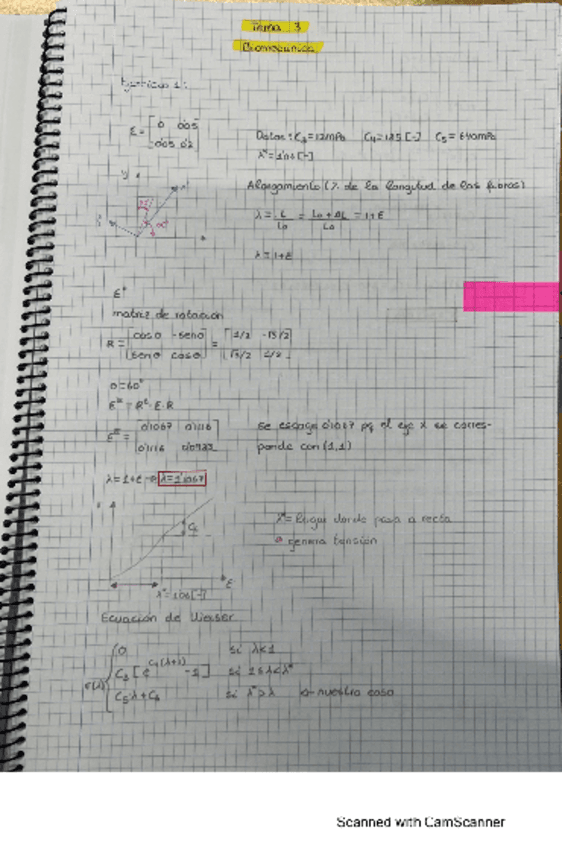 Tema 3
Biomecánica
Ejercicio 1:
E = [0 0'05
-0'05 0'2]
Datos: C3 = 12mPa C4 = 125 [-] C5 = 640mPa
λ* = 1'06 [-]
Alargamiento (% de la longitud de las fibras)
λ = L/L0 = L0 + ΔL/L0 = 1+E
λ = 1+E
E*
matriz de rotación
R = [cos θ -sen θ = [1/2 -√3/2
sen θ cos θ] √3/2 1/2]
θ = 60°
E* = Rt · E · R
E* = [0'1067 0'1116
0'1116]
se escoge 0'1067 pq el eje x se corres-
ponde con (1,1)
λ = 1+E → λ = 1'1067
C5
λ* = lugar donde pasa a recta
genera tensión
λ* = 1'06 [-]
E
Ecuación de
0 si λ<1
C3 [e^C4(λ+1) - 1] si 1≤λ<λ*
C5 λ + C6 si λ* > λ → nuestro caso
Scanned with CamScanner